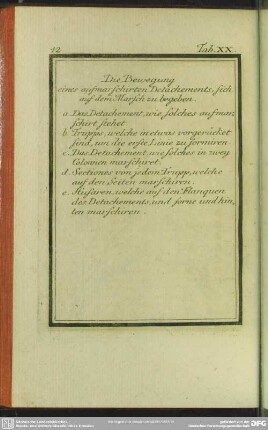 42
Tab. XX.
Die Bewegung
eines aufmarschirten Detachements, sich
auf dem Marsch zu begeben.
a. Das Detachement, wie solches aufmar,
schirt stehet.
b. Trupps, welche in etwas vorgerücket
sind, um die erste Linie zu formiren.
c. Das Detachement, wie solches in zwey
Colonnen marschiret.
d. Sectiones von jedem Trupp, welche
auf den Seiten marschiren.
e. Husaren, welche auf den Flanquen
des Detachements, und forne und hin,
ten marschiren.